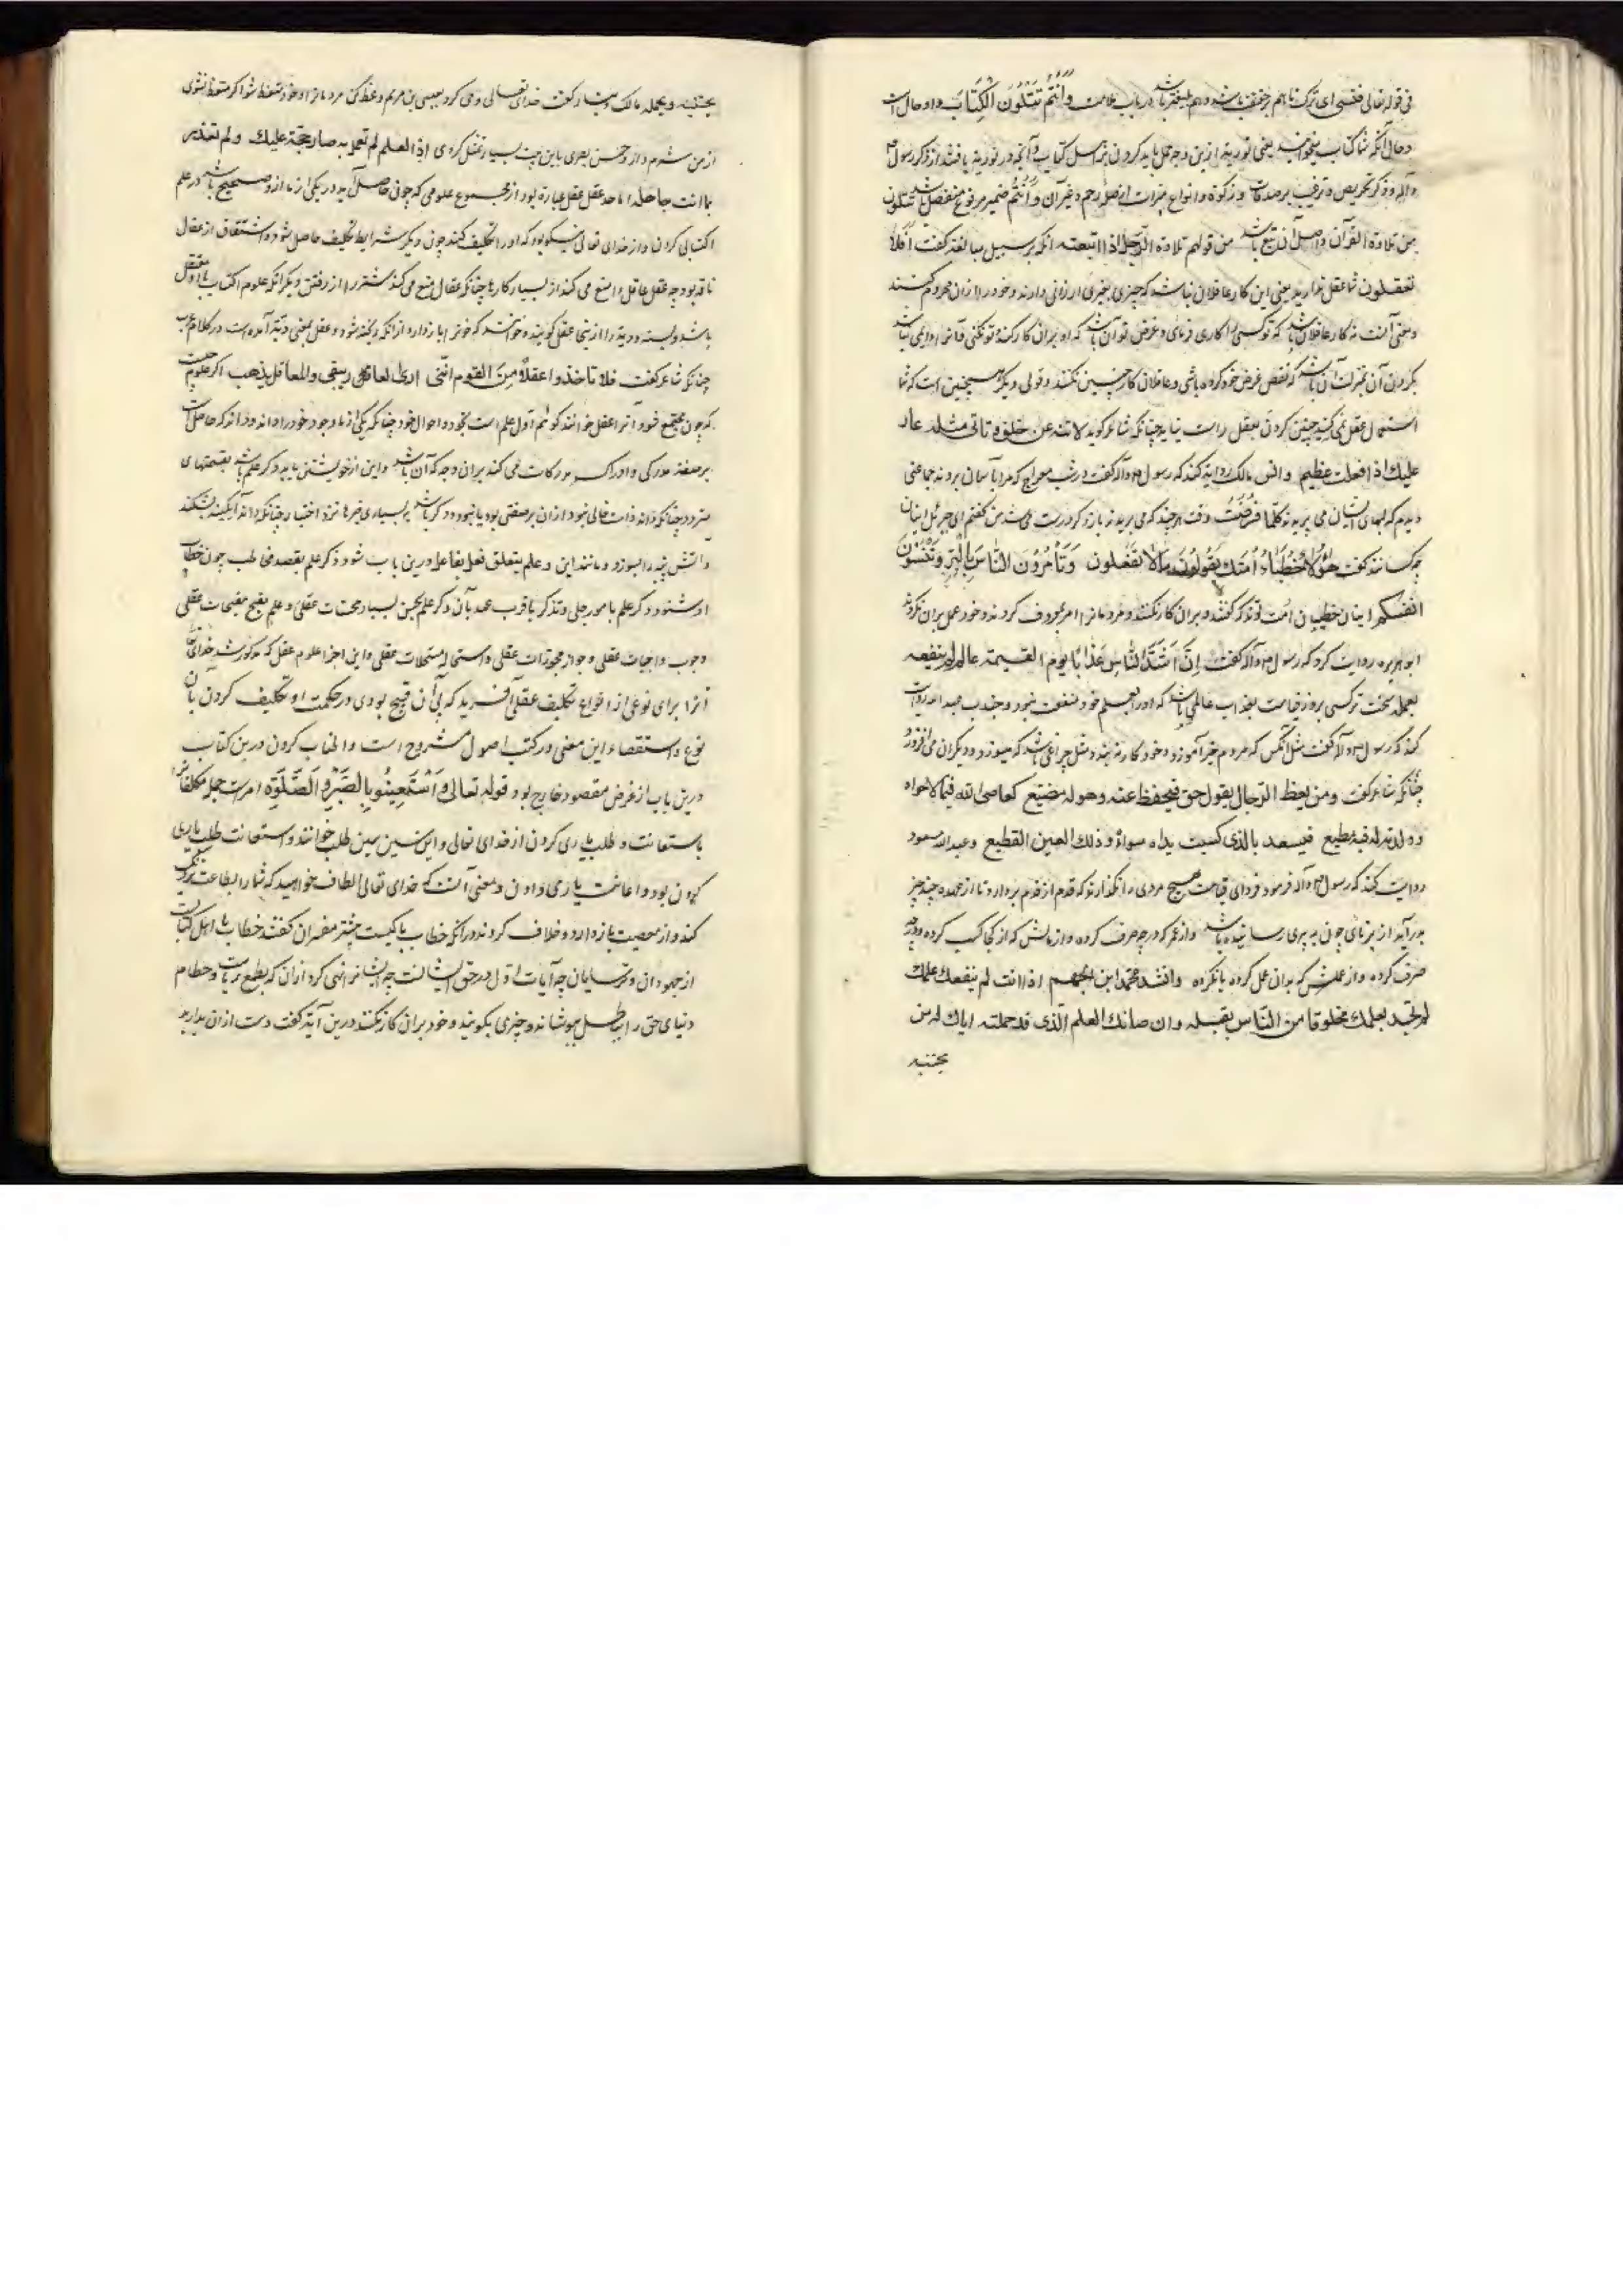 فی قوله تعالی فنسی ای ترک تا هم برحقیقت باشد و هم بلیغتر باشد در باب ملامت وَاَنْتُمْ تَتْلُونَ الْکِتَابَ واو حال است
و حال آنکه شما کتاب میخوانید یعنی توریة ازین وجه عمل باید کردن بر اصل کتاب و آنچه در توریة یافتند از ذکر رسول
وآله و ذکر تحریص و ترغیب بر صدقات و زکوة و انواع مبرات از صله رحم و غیر آن وَاَنْتُمْ ضمیر مرفوع منفصل باشد تتلون
من تلاوة القرآن و اصل آن تبع باشد من قولهم تلاوة الرجل اذا اتبعته آنکه بر سبیل مبالغه گفت اَفَلَا
تعقلون شما عقل ندارید یعنی این کار عاقلان نباشد که چیزی بغیری ارزانی دارند و خود را از آن محروم کنند
و معنی آنست نه کار عاقلان باشد که تو کسی را کاری فرمای و غرض تو آن باشد که او بر آن کار کند و تو نکنی
بکردن آن بمنزلت آن باشد که نقض غرض خود کرده باشی و عاقلان کار چنین نکنند و قولی دیگر همچنین است که شما
استعمال عقل نمی کنید چنین کردن بعقل راست نیاید چنانکه شاعر گوید لا تنه عن خلق و تاتی مثله عار
علیك اذا فعلت عظیم و انس مالک روایت کند که رسول وآله گفت در شب معراج که مرا بآسمان بردند جماعتی
دیدم که لبهای ایشان می بریدند کلما قُرِضَتْ وَفَت هر چند که می بریدند باز دگر درست می شد من گفتم ای جبرئیل اینان
چه کسانند گفت هٰؤُلَاءِ خُطَبَاءُ اُمَّتِكَ یَقُولُونَ مالا تفعلون وَتَأْمُرُونَ النَّاسَ بِالْبِرِّ وَتَنْسَوْنَ
انفسکم اینان خطیبان امت تواند که گفتند و بر آن کار نکنند و مردمانرا امر بمعروف کردند و خود عمل بر آن نکردند
ابو هریره روایت کرد که رسول وآله گفت اِنَّ اَشَدَّ النَّاسِ عَذَابًا یوم القیمة عالم لم ینفعه
بعلمه سخت ترکسی بروز قیامت بعذاب عالمی باشد که او را بعلم خود منفعت نبود و جندب عبدالله روایت
کند که رسول وآله گفت مثل آنکس که مردم خیر آموزد و خود کار نه بندد مثل چراغی باشد که میسوزد و دیگران می افروزد
چنانکه شاعر گفت ومن یعظ الرجال بقول حق فیحفظ عنه وهو له مضیع کعاصی الله
فیسعد بالذی کسبت یداه سواه وذلك العین القطیع و عبدالله مسعود
روایت کند که رسول وآله فرمود فردای قیامت هیچ مردی را نگذارند که قدم از قدم بردارد تا از عهده چند چیز
بدر آید از برنای چون به پیری رسانیده باشد و از عمر که در چه صرف کرده و از مالش که از کجا کسب کرده و در چه
صرف کرده و از عملش که بدان عمل کرده یا نکرده وانشد محمد ابن الجهم اذا انت لم ینفعك علمك
لم تجد بعلمك مخلوقا من الناس یقبله وان صانك العلم الذی قد حملته ایاك له من
یجتنیه
یجتنیه و یحمله مالک دینار گفت خدای تعالی وحی کرد بعیسی بن مریم وعظ کن مردمانرا و خود متعظ شو اگر متعظ نشوی
از من شرم دار و حسن بصری باین بیت بسیار تمثل کردی اذا العلم لم تعمل به صار حجة علیك ولم تعذر
بما انت جاهله اما حد عقل عقل عبارة بود از مجموع علومی که چون حاصل آید در یکی از ما از او صحیح باشد در علم
اکتسابی کردن و از خدای تعالی نیکو بود که او را تکلیف کند چون دیگر شرایط تکلیف حاصل شود و اشتقاق از عقال
ناقه بود چه عقل عاقل را منع می کند از بسیار کارها چنانکه عقال منع می کند شتر را از رفتن و دیگر آنکه علوم اکتسابی با او معتقل
باشد و بسته و دیة را ازینجا عقل گویند و خوانند که خونرا باز دارد از آنکه ریخته شود و عقل بمعنی دیة آمده است در کلام عرب
چنانکه شاعر گفت فلا تاخذوا عقلاً من القوم اننی اری العاقل یبقی والمعاقل یذهب اگر علوم
که چون مجتمع شود آنرا عقل خوانند گوئیم اول علم است بخود و احوال خود چنانکه یکی از ما وجود خود را داند و داند که حاصل است
بر صفت مدرکی و ادراک مدرکات می کند بر آن وجه که آن باشد و این از خویشتن یابد و دگر علم باشد بقسمتهای
متردد چنانکه داند ذات خالی نبود از آن بر صفتی بود یا نبود و دگر باشد به بسیاری خبرها نزد اختبار چنانکه داند آبگینه بشکند
و آتش پنبه را بسوزد و مانند این و علم بتعلق فعل بفاعل و درین باب شود و ذکر علم بقصد مخاطب چون خطاب
او شنود و دگر علم بامور جلی و تذکر باقرب عهد بآن و دگر علم بحسن بسیار محسنات عقلی و علم بقبح مقبحات عقلی
وجوب واجبات عقلی و جواز مجوزات عقلی و استحاله مستحیلات عقلی و این اجزا علوم عقل که مذکور شد خدای تعالی
آنرا برای نوعی از انواع تکلیف عقلی آفرید که بی آن قبیح بودی در حکمت او تکلیف کردن بآن
نوع و استقصاء این معنی در کتب اصول مشروح است و اطناب کردن درین کتاب
درین باب از غرض مقصود خارج بود قوله تعالی وَاسْتَعِینُوا بِالصَّبْرِ وَالصَّلٰوةِ امرست جمله مکلفانرا
باستعانت و طلب یاری کردن از خدای تعالی و این سین سین طلب خوانند و استعانت طلب یاری
کردن بود و اعانت یاری دادن و معنی آنست که خدای تعالی الطاف خواهید که شما را بطاعت نزدیک
کند و از معصیت باز دارد و خلاف کردند در آنکه خطاب با کیست بیشتر مفسران گفتند خطاب با اهل کتاب است
از جهودان و ترسایان چه آیات اول در حق ایشانست چه ایشانرا نهی کرد از آن که بطمع ریاست و حطام
دنیای حق را بباطل بپوشانند و چیزی بگویند و خود بر آن کار نکنند درین آیة گفت دست از آن بدارید